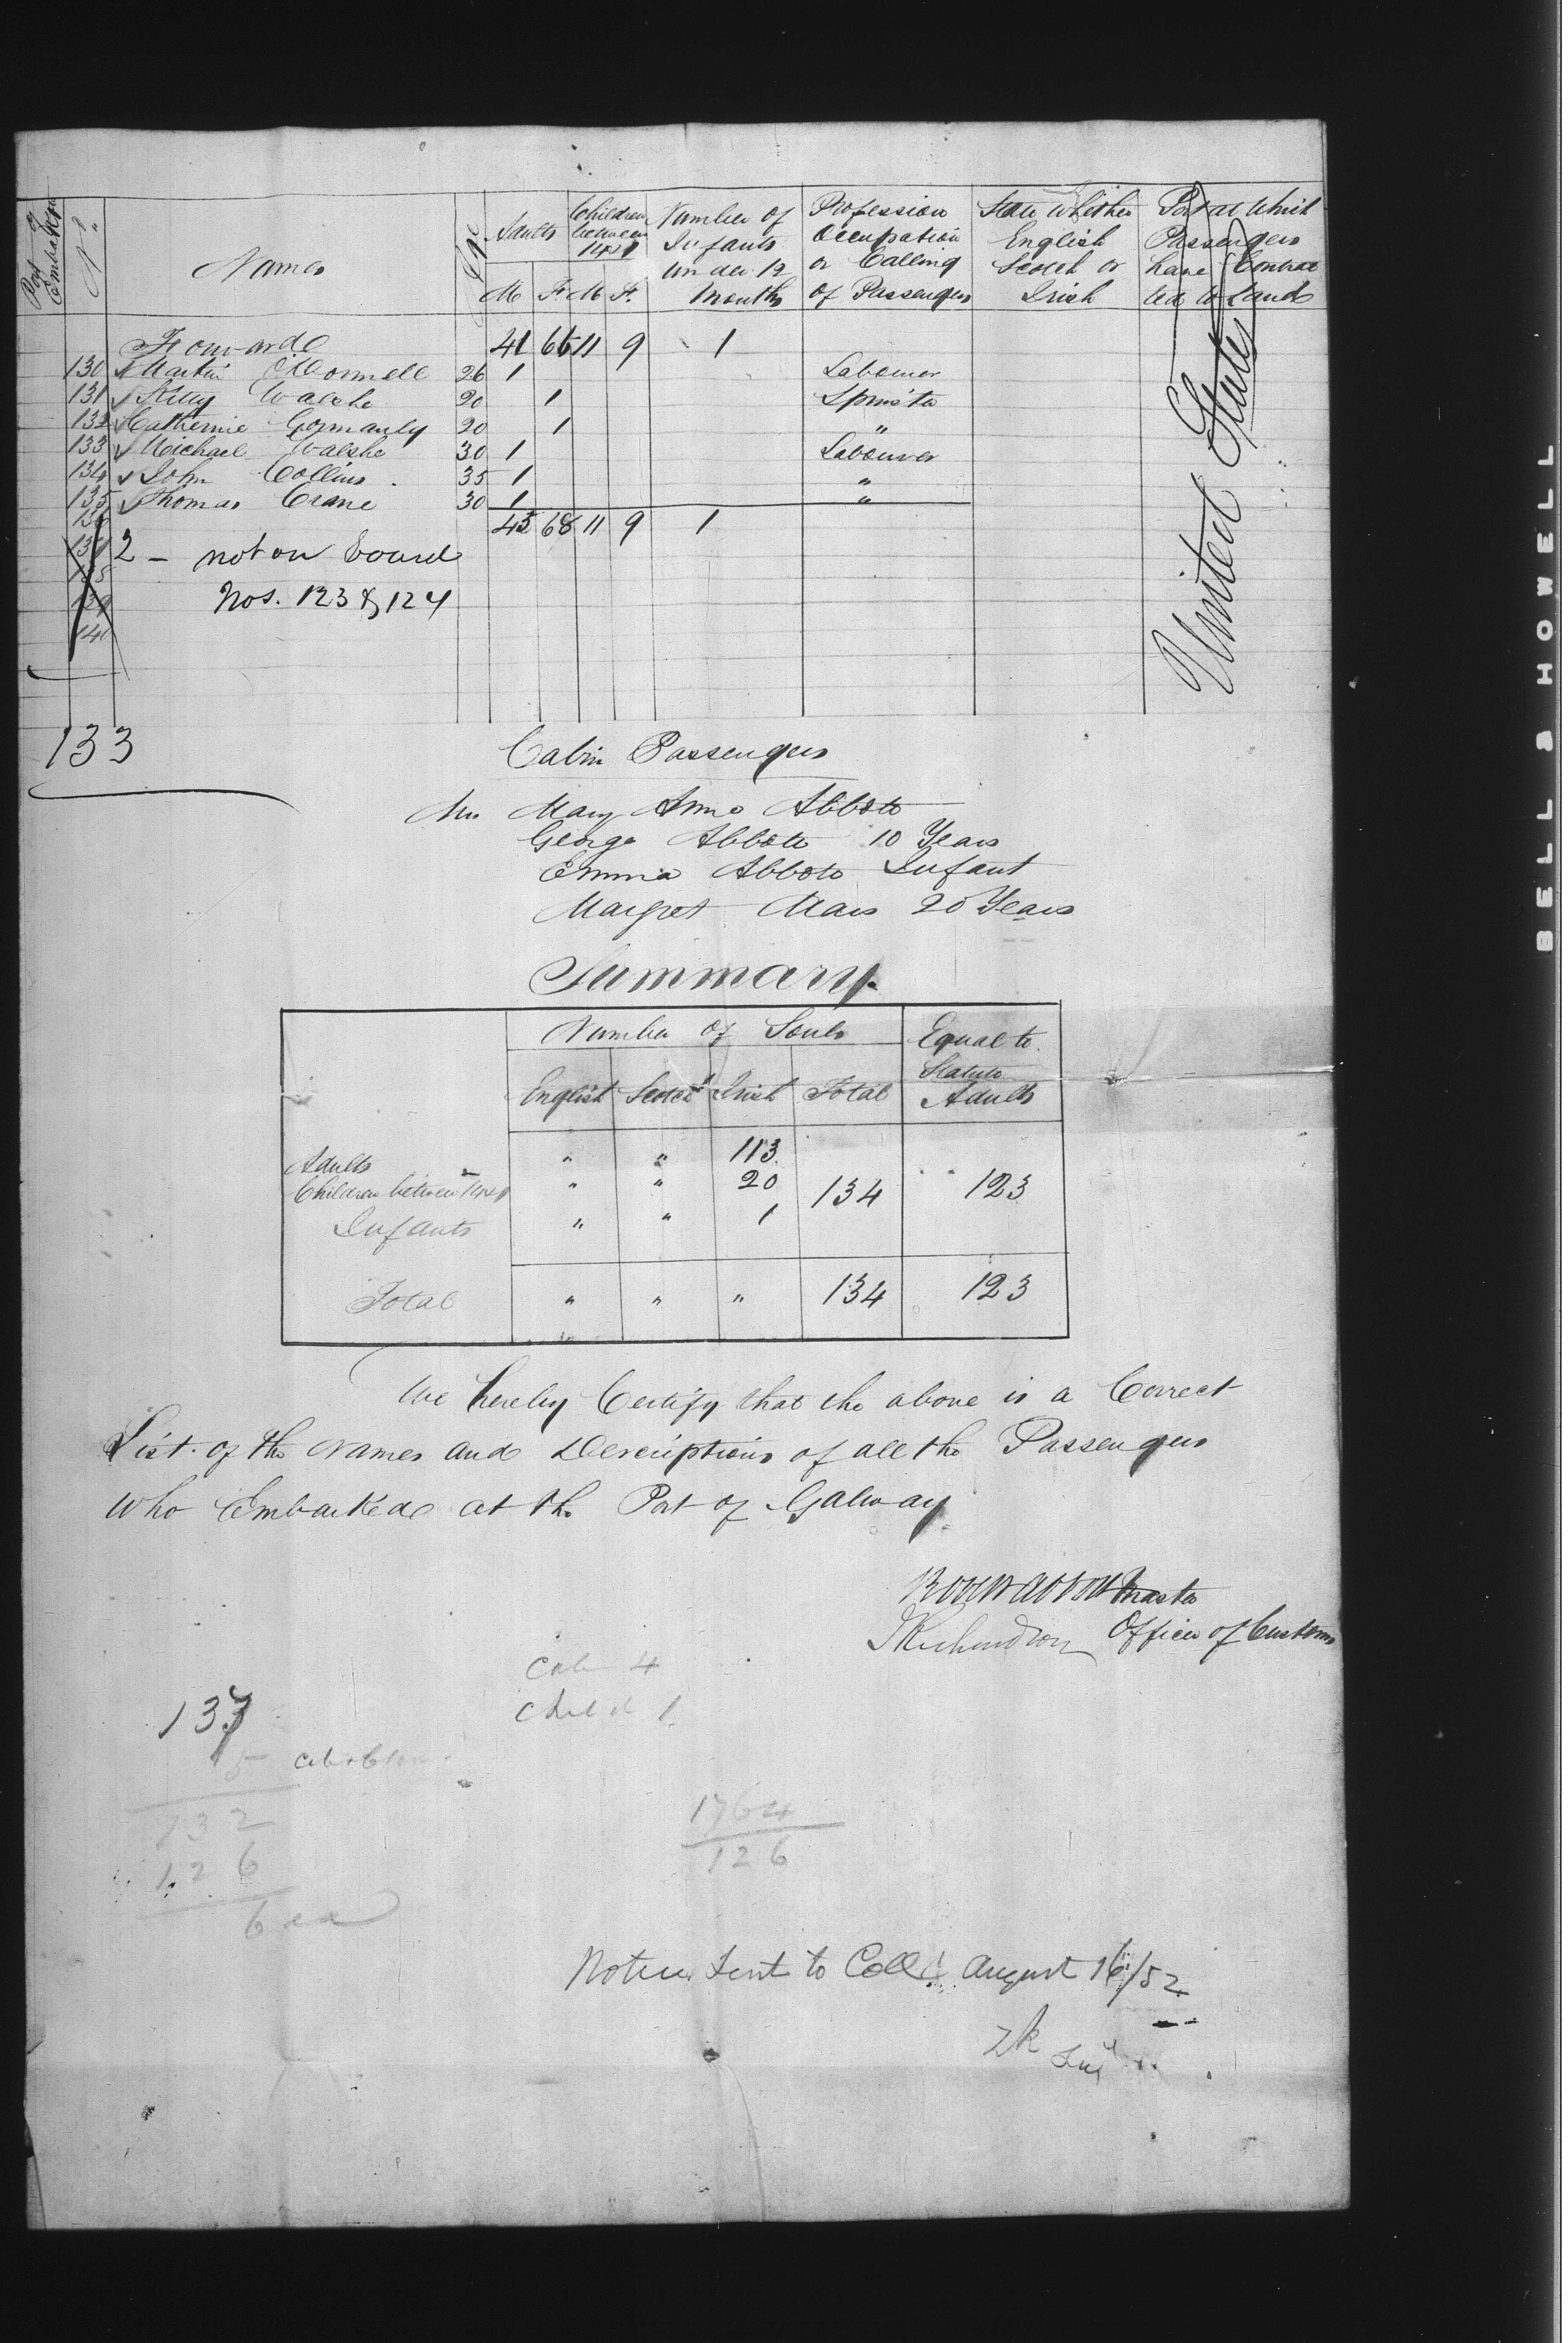 Port of Embarkation
No.
Names
Age
Adults
M F
Children between 14 & 1
M F.
Number of Infants under 12 Months
Profession Occupation or Calling of Passengers
State Whether English Scotch or Irish
Port at Which Passengers have Contracted to Land
Forward 41 66 11 9 1
130 Martin O'Donnell 26 1 Labourer
131 Walshe 20 1 Spinster
132 Catherine Gormanly 20 1 "
133 Michael Walshe 30 1 Labourer
134 John Collins 35 1 "
135 Thomas Crane 30 1 "
136 45 68 11 9 1
137 2 - not on board
138
139 Nos. 123 & 124
140
United States
133
Cabin Passengers
Mrs Mary Anne Abbott
George Abbott 10 Years
Emma Abbott Infant
Margret Mars 20 Years
Summary.
Number of Souls Equal to Statute Adults
English Scotch Irish Total
Adults " " 113
Children between 14 & 1 " " 20 134 123
Infants " " 1
Total " " " 134 123
We hereby Certify that the above is a Correct
List of the Names and Descriptions of all the Passengers
Who Embarked at the Port of Galway
Abbott Master
J Richardson Officer of Customs
Cab 4
Child 1
137
5
132
126
6
1764
126
Notice Sent to Coll. August 16/52
BELL & HOWELL